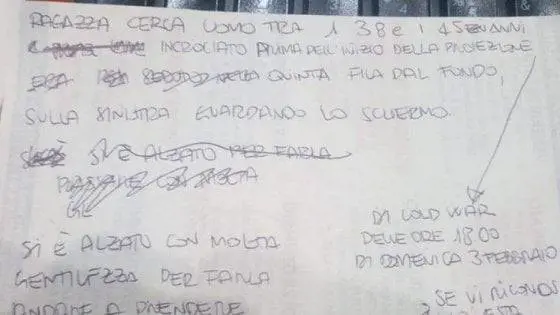 RAGAZZA CERCA UOMO TRA I 38 E I 45 ANNI
INCROCIATO PRIMA DELL'INIZIO DELLA PROIEZIONE
ERA SEDUTO NELLA QUINTA FILA DAL FONDO,
SULLA SINISTRA GUARDANDO LO SCHERMO.
SI È ALZATO PER FARLA
SI È ALZATO CON MOLTA
GENTILEZZA PER FARLA
ANDARE A PRENDERE
DI COLD WAR
DELLE ORE 18.00
DI DOMENICA 3 FEBBRAIO
SE VI RICONOS